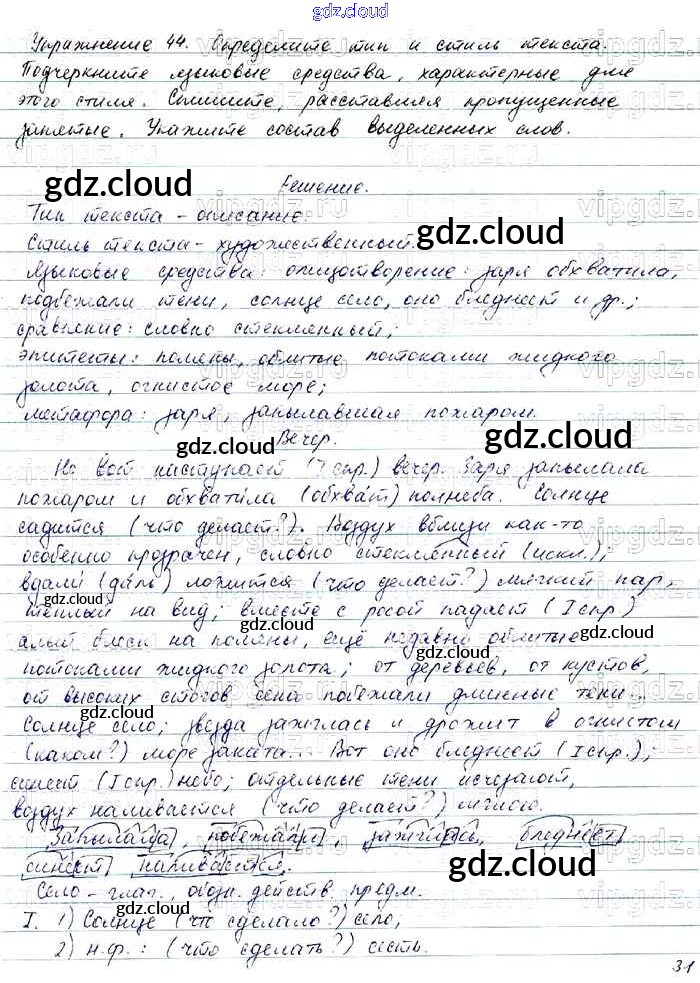 gdz.cloud
Упражнение 44. Определите тип и стиль текста.
Подчеркните языковые средства, характерные для
этого стиля. Спишите, расставляя пропущенные
запятые. Укажите состав выделенных слов.
gdz.cloud
Решение.
Тип текста - описание.
gdz.cloud
Стиль текста - художественный.
Языковые средства: олицетворение: заря обхватила,
подбежали тени, солнце село, оно бледнеет и др.;
сравнение: словно стеклянный;
эпитеты: поляны, облитые потоками жидкого
золота, огнистое море;
метафора: заря, запылавшая пожаром.
gdz.cloud
gdz.cloud
Вечер.
Но вот наступает (I спр.) вечер. Заря запылала
пожаром и обхватила (обхват) полнеба. Солнце
садится (что делает?). Воздух вблизи как-то
особенно прозрачен, словно стеклянный (искл.);
вдали (даль) ложится (что делает?) мягкий пар,
gdz.cloud
тёплый на вид; вместе с росой падает (I спр.)
алый блеск на поляны, ещё недавно облитые
gdz.cloud
потоками жидкого золота; от деревьев, от кустов,
от высоких стогов сена побежали длинные тени...
gdz.cloud
Солнце село; звезда зажглась и дрожит в огнистом
(каком?) море заката... Вот оно бледнеет (I спр.);
синеет (I спр.) небо; отдельные тени исчезают,
воздух наливается (что делает?) мглою.
Запылала, побежали, зажглась, бледнеет,
синеет, наливается.
gdz.cloud
Село - глаг., обозн. действ. предм.
gdz.cloud
I. 1) Солнце (что сделало?) село;
2) н.ф.: (что сделать?) сесть.
gdz.cloud
31